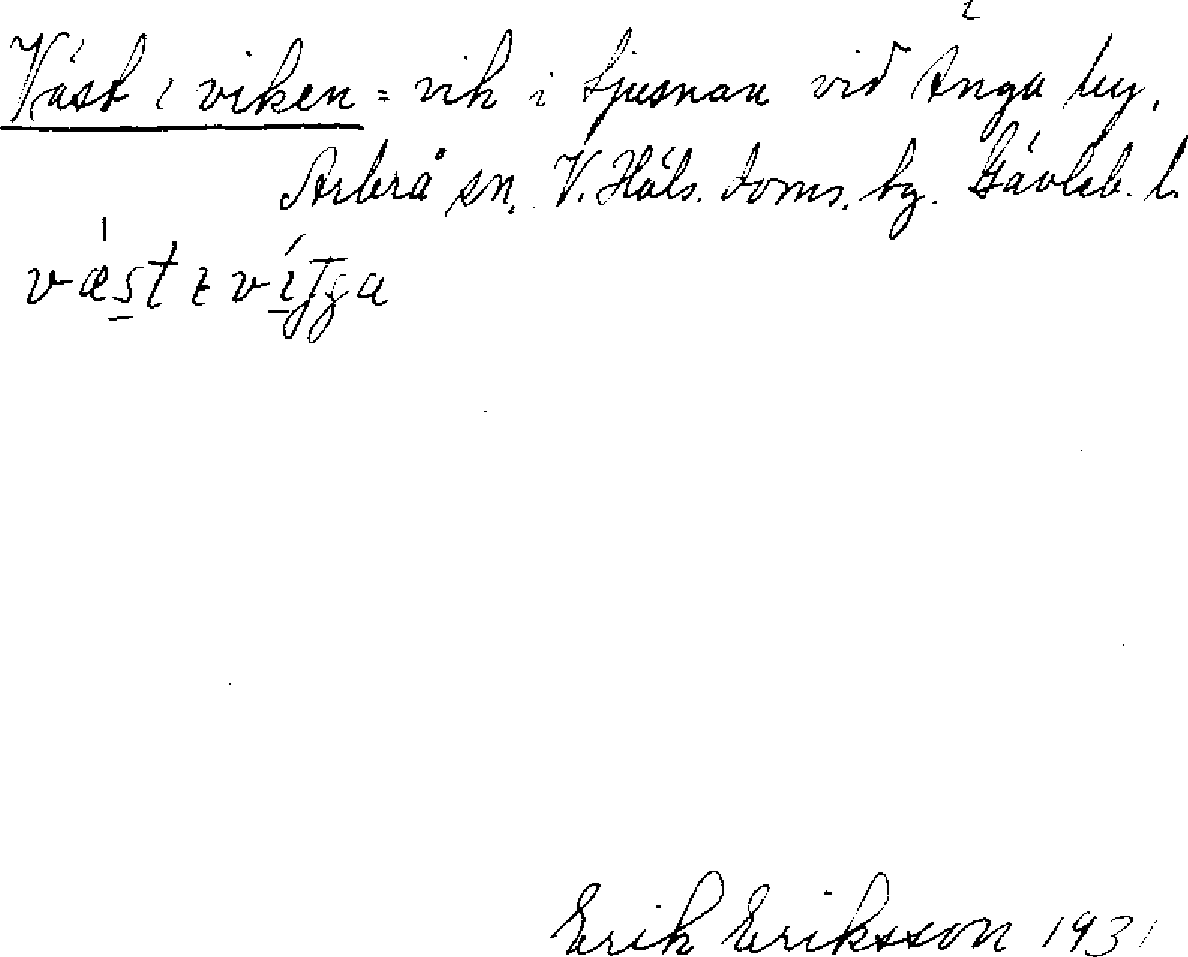 Väst i viken = vik i Ljusnan vid Änga by,
Arbrå sn, V. Häls. doms. bg. Gävleb. l.
Erik Eriksson 1931